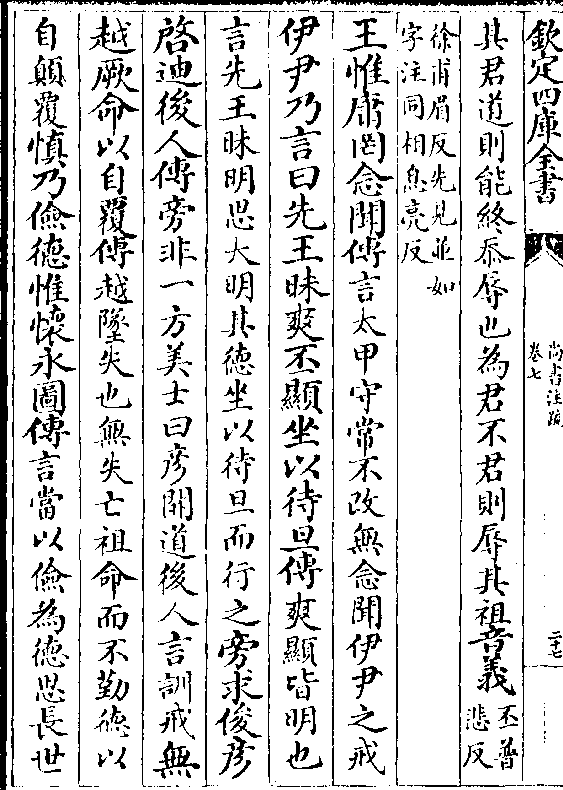 欽定四庫全書
尚書注疏
卷七
二十七
其君道則能終忝辱也為君不君則辱其祖音義
丕普
悲反
徐甫眉反先見並如
字注同相息亮反
王惟庸罔念聞傳言太甲守常不改無念聞伊尹之戒
伊尹乃言曰先王昧爽丕顯坐以待旦傳爽顯皆明也
言先王昧明思大明其德坐以待旦而行之旁求俊彦
啓迪後人傳旁非一方美士曰彦開道後人言訓戒無
越厥命以自覆傳越墜失也無失亡祖命而不勤德以
自顛覆慎乃儉德惟懷永圖傳言當以儉為德思長世